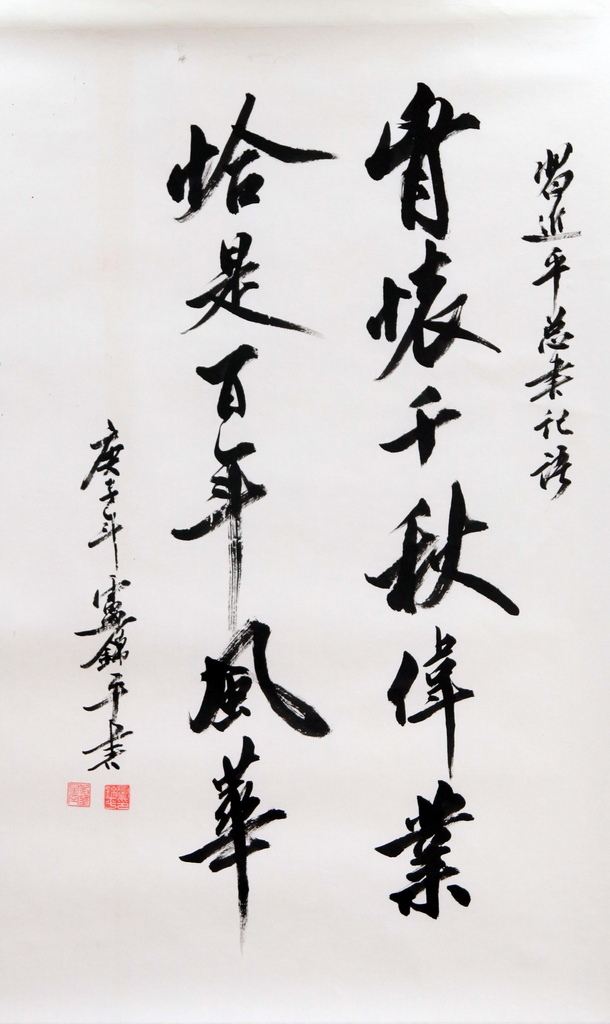 習近平总書记语
胷懷千秋偉業
恰是百年風華
庚子年錦平書